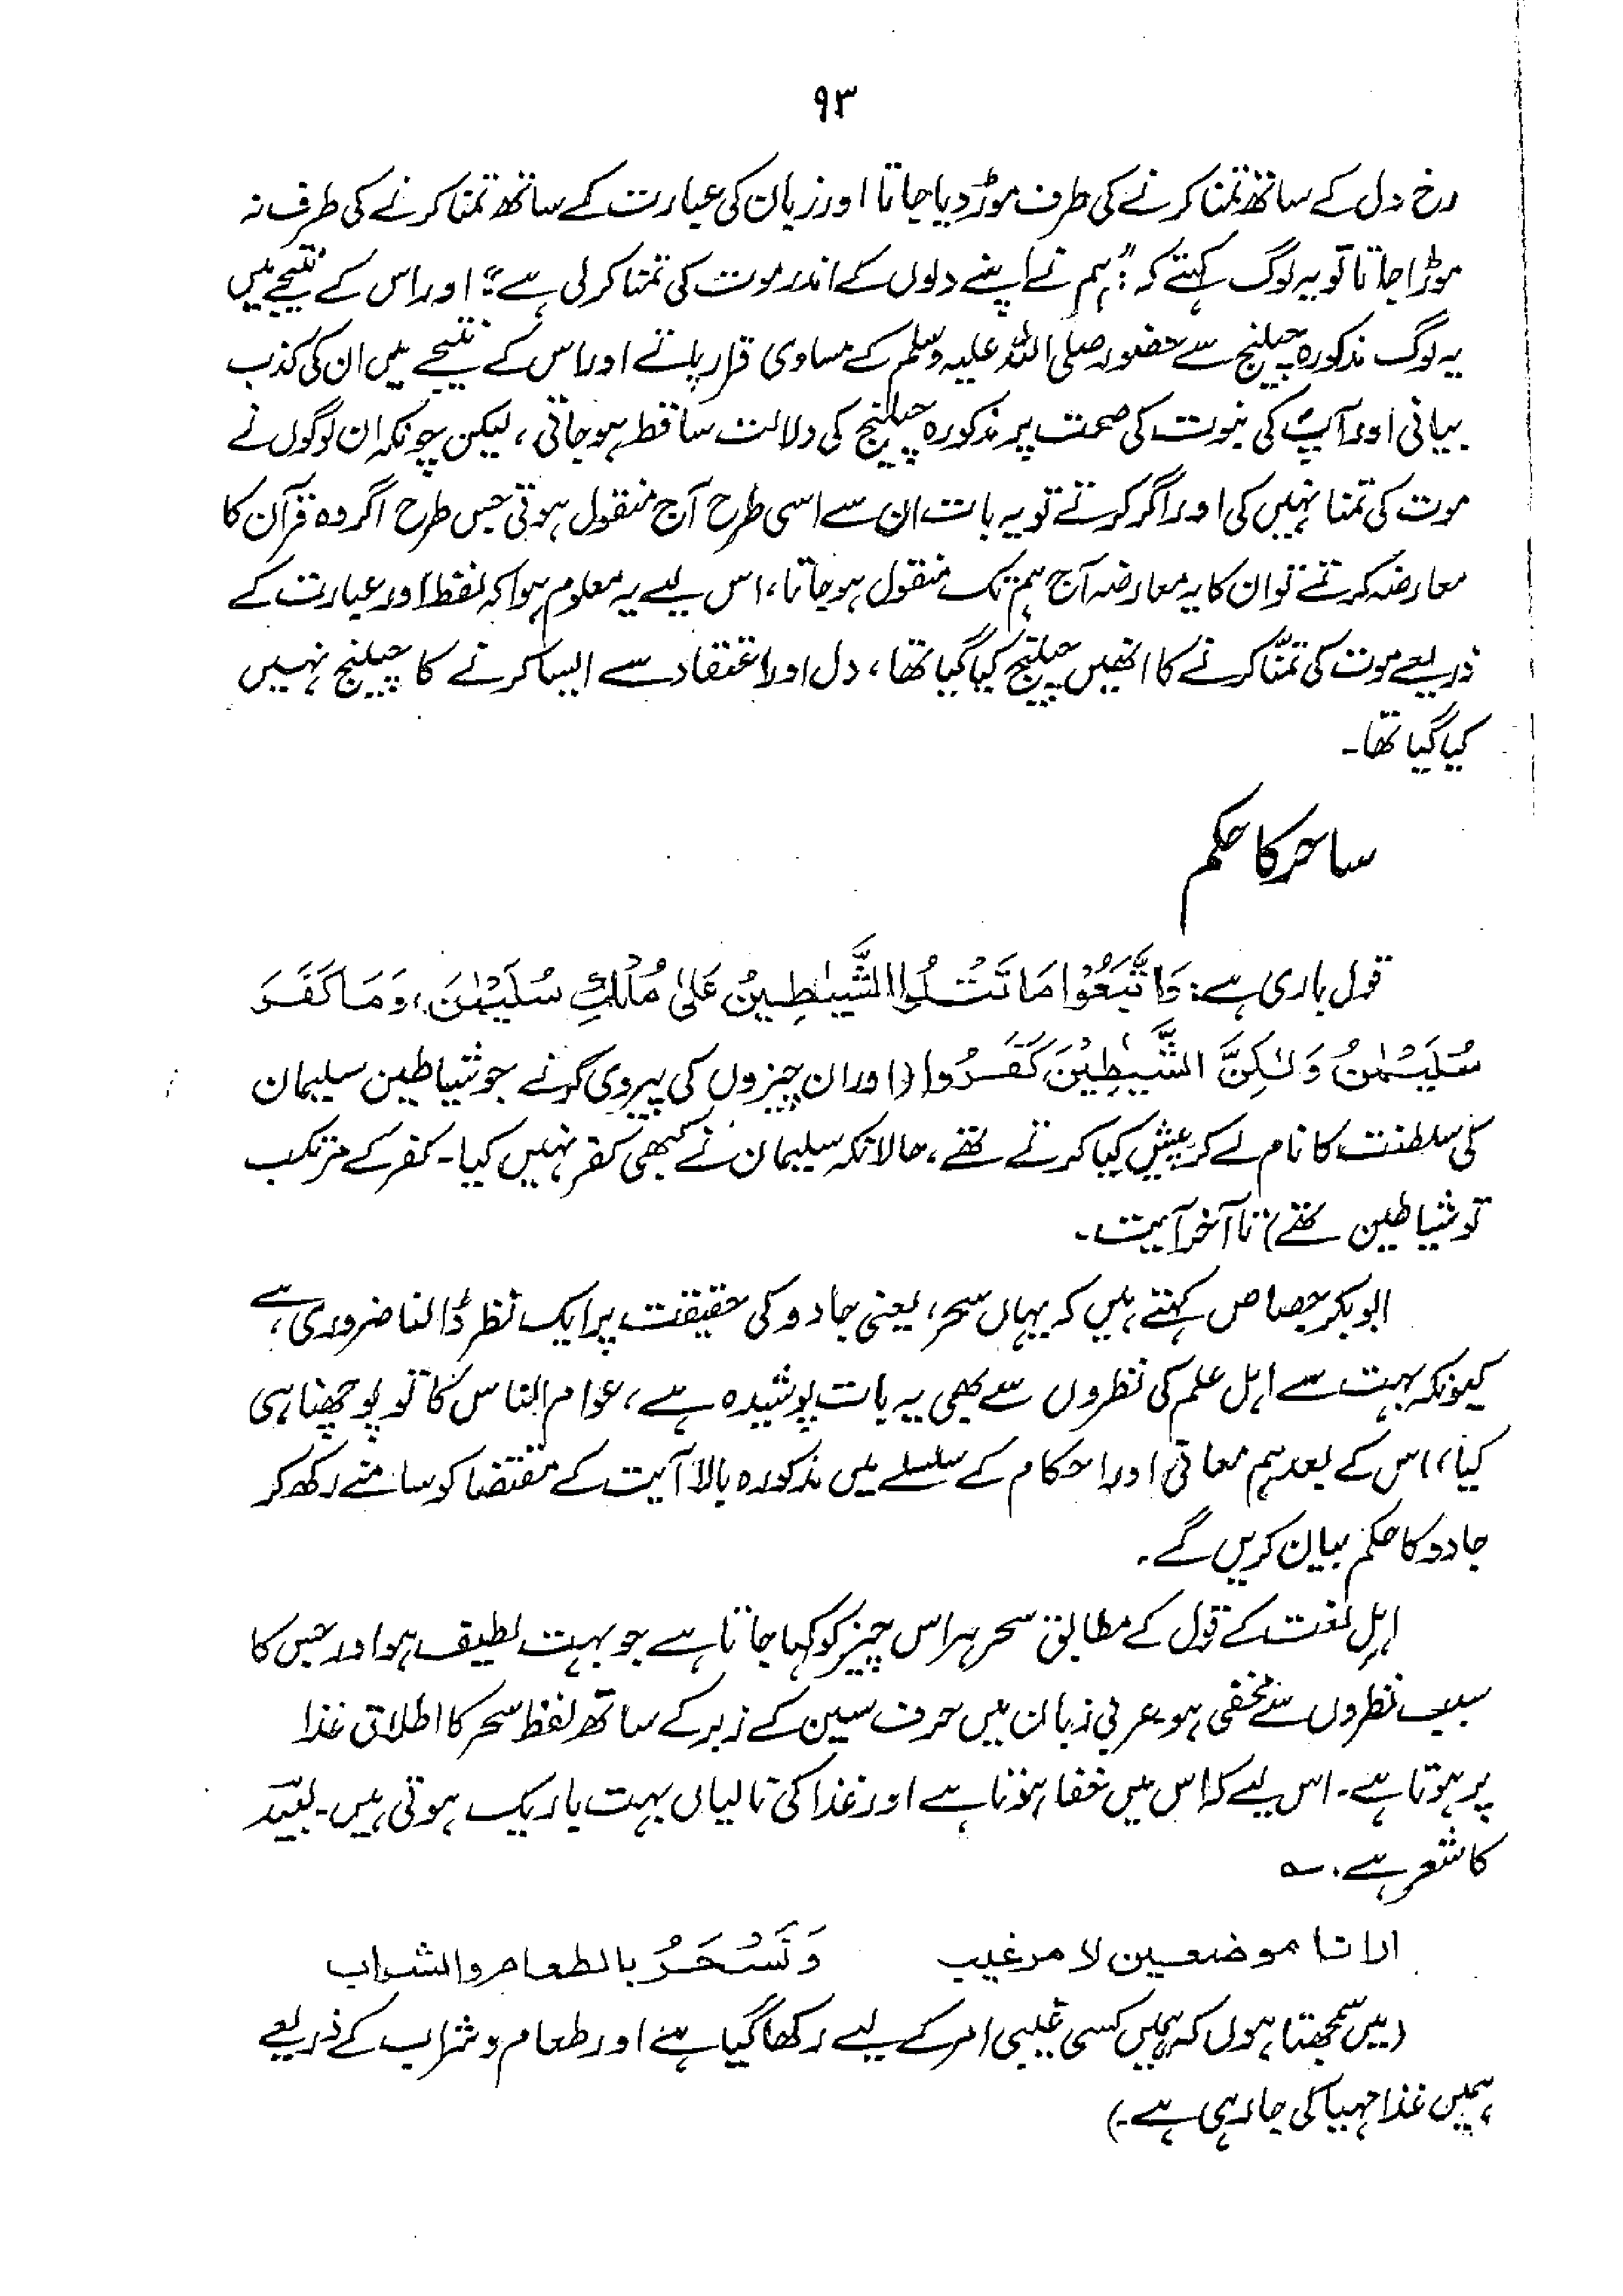 ۹۳
رخ دل کے ساتھ تمنا کرنے کی طرف موڑ دیا جاتا اور زبان کی عبارت کے ساتھ تمنا کرنے کی طرف نہ
موڑا جاتا تو یہ لوگ کہتے کہ: "ہم نے اپنے دلوں کے اندر موت کی تمنا کر لی ہے" اور اس کے نتیجے میں
یہ لوگ مذکورہ چیلنج سے حضور صلی اللہ علیہ وسلم کے مساوی قرار پاتے اور اس کے نتیجے میں ان کی کذب
بیانی اور آپؐ کی نبوت کی صحت پر مذکورہ چیلنج کی دلالت ساقط ہو جاتی، لیکن چونکہ ان لوگوں نے
موت کی تمنا نہیں کی اور اگر کرتے تو یہ بات ان سے اسی طرح آج منقول ہوتی جس طرح اگر وہ قرآن کا
معارضہ کرتے تو ان کا یہ معارضہ آج ہم تک منقول ہو جاتا، اس لیے یہ معلوم ہوا کہ لفظ اور عبارت کے
ذریعے موت کی تمنّا کرنے کا انھیں چیلنج کیا گیا تھا، دل اور اعتقاد سے ایسا کرنے کا چیلنج نہیں
کیا گیا تھا۔
ساحر کا حکم
قول باری ہے: وَاتَّبَعُوْا مَا تَتْلُوا الشَّیٰطِیْنُ عَلٰی مُلْكِ سُلَیْمٰنَ، وَمَا کَفَرَ
سُلَیْمٰنُ وَلٰکِنَّ الشَّیٰطِیْنَ کَفَرُوا (اور ان چیزوں کی پیروی کرنے جو شیاطین سلیمان
کی سلطنت کا نام لے کر پیش کیا کرتے تھے، حالانکہ سلیمان نے کبھی کفر نہیں کیا۔ کفر کے مرتکب
تو شیاطین تھے) تا آخر آیت۔
ابو بکر جصاص کہتے ہیں کہ یہاں سحر، یعنی جادو کی حقیقت پر ایک نظر ڈالنا ضروری ہے،
کیونکہ بہت سے اہل علم کی نظروں سے بھی یہ بات پوشیدہ ہے، عوام الناس کا تو پوچھنا ہی
کیا، اس کے بعد ہم معانی اور احکام کے سلسلے میں مذکورہ بالا آیت کے مقتضا کو سامنے رکھ کر
جادو کا حکم بیان کریں گے۔
اہلِ لغت کے قول کے مطابق سحر ہر اس چیز کو کہا جاتا ہے جو بہت لطیف ہو اور جس کا
سبب نظروں سے مخفی ہو۔ عربی زبان میں حرف سین کے زبر کے ساتھ لفظ سحر کا اطلاق غذا
پر ہوتا ہے۔ اس لیے کہ اس میں خفا ہوتا ہے اور غذا کی نالیاں بہت باریک ہوتی ہیں۔ لبید
کا شعر ہے۔ ؎
ارانا موضعین لامر غیب وَنُسْحَرُ بالطعام والشراب
(میں سمجھتا ہوں کہ ہمیں کسی غیبی امر کے لیے رکھا گیا ہے اور طعام و شراب کے ذریعے
ہمیں غذا مہیا کی جا رہی ہے۔)